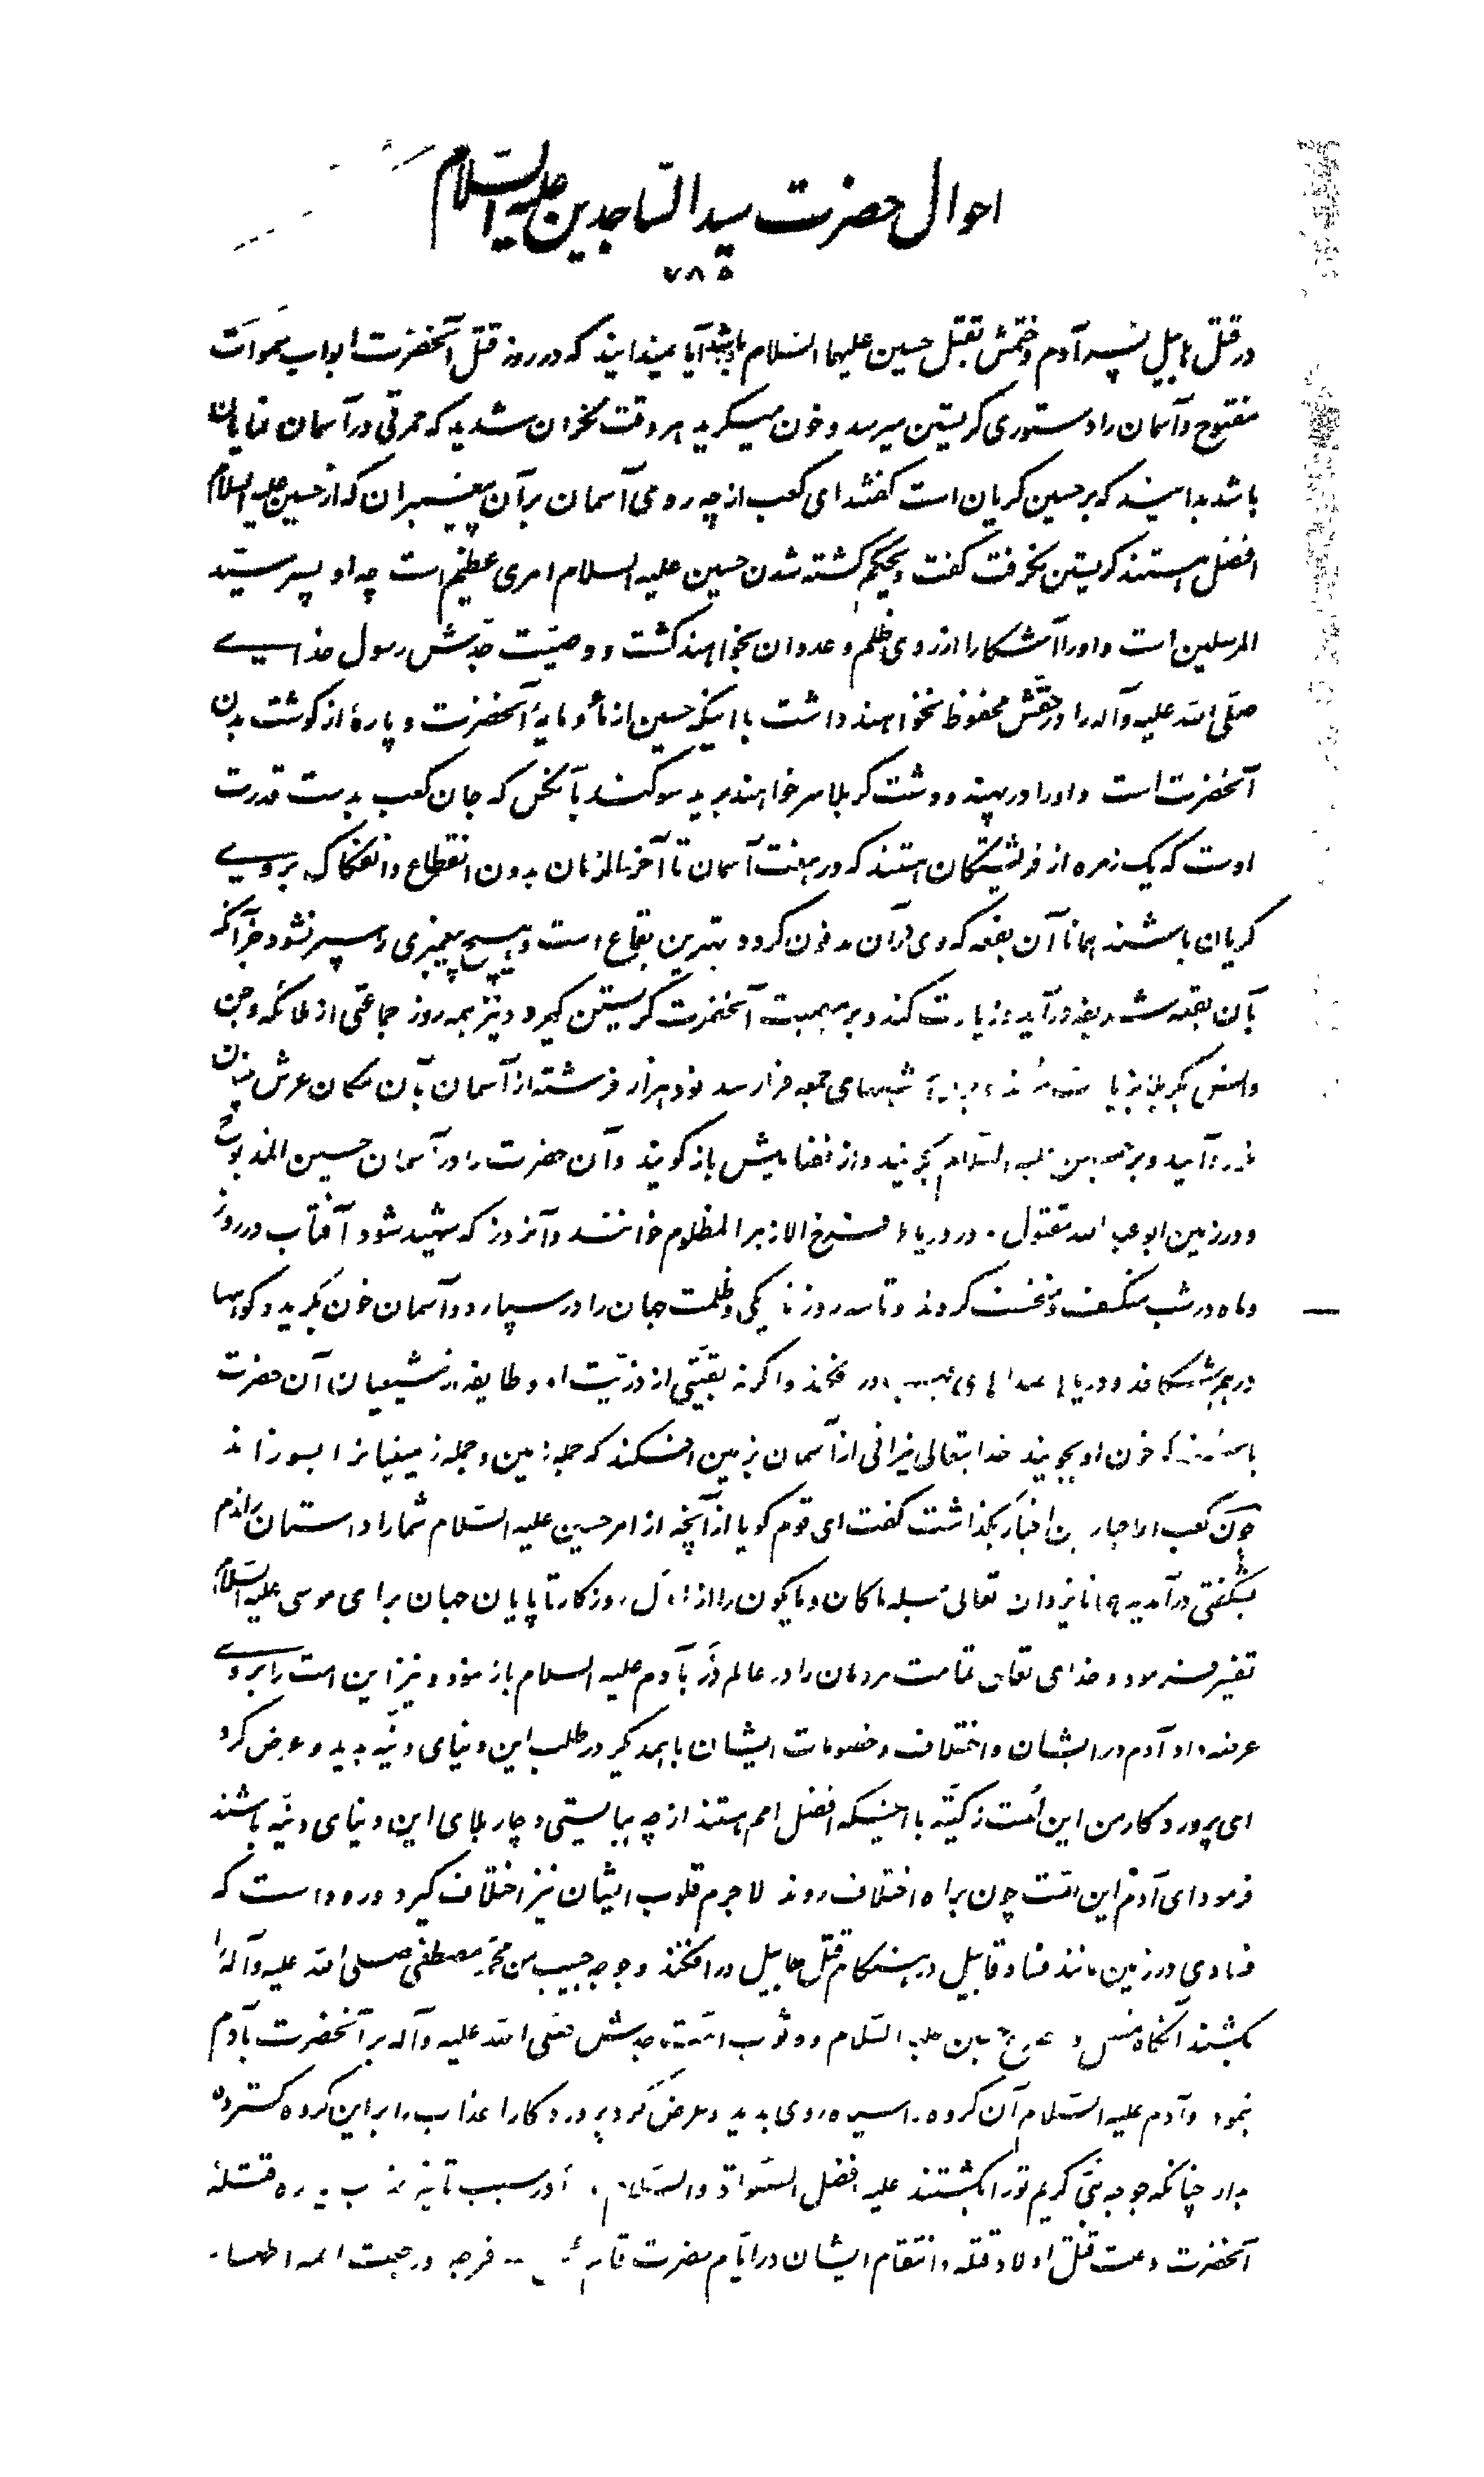 احوال حضرت سید الساجدین علیه السّلام
۷۸۵
در قتل هابیل پسر آدم و ختمش بقتل حسین علیهما السّلام باشد آیا نمیدانید که در روز قتل آنحضرت ابواب سموات
مفتوح و آسمان را دستوری گریستن میرسد و خون میگرید هر وقت نگران شدید که حمرتی در آسمان نمایان
باشد بدانید که بر حسین گریان است گفتند ای کعب از چه روی آسمان بر آن پیغمبران که از حسین علیه السلام
افضل هستند گریستن نگرفت گفت ویحکم کشته شدن حسین علیه السلام امری عظیم است چه او پسر سیّد
المرسلین است و او را آشکارا از روی ظلم و عدوان بخواهند کشت و وصیّت جدّش رسول خدای
صلّی الله علیه و آله را در حقّش محفوظ نخواهند داشت با اینکه حسین از ماء و مایهٔ آنحضرت و پارهٔ از گوشت بدن
آنحضرت است و او را در پهنه دشت کربلا سر خواهند برید سوگند بآنکس که جان کعب بدست قدرت
اوست که یک زمره از فرشتگان هستند که در هفت آسمان تا آخر الزمان بدون انقطاع و انفکاک بروی
گریان باشند همانا آن بقعه که وی در آن مدفون گردد بهترین بقاع است و هیچ پیغمبری سپر نشود جز آنکه
بآن بقعه شریفه در آید و زیارت کند و بر مصیبت آنحضرت گریستن گیرد و نیز همه روز جماعتی از ملائکه و جن
و انس بکربلا بزیارت شبهای جمعه فرا رسد نود هزار فرشته از آسمان بآن مکان عرش بنیان
در آیند و بر حسین علیه السّلام بگریند و از فضایلش باز گویند و آن حضرت را در آسمان حسین المذبوح
و در زمین ابو عبد الله مقتول و در دریاها فرخ الازهر المظلوم خوانند و آنروز که شهید شود آفتاب در روز
و ماه در شب منکسف و منخسف گردند و تا سه روز تاریکی و ظلمت جهان را در سپارد و آسمان خون بگرید و کوهها
درهم شکافد و دریاها و اگر نه بقیّتی از ذریّت او و طایفه از شیعیان آن حضرت
باشند که خون او بجویند خدایتعالی نیرانی از آسمان بزمین افکند که جمله زمین و جمله زمینیانرا بسوزاند
چون کعب الاحبار این اخبار بگذاشت گفت ای قوم گویا از آنچه از امر حسین علیه السّلام شما را داستان راندم
بشگفتی در آمدید همانا یزدان تعالی مسئله ماکان و مایکون را از اوّل روزگار تا پایان جهان برای موسی علیه السّلام
تفسیر فرمود و خدای تعالی تمامت مردمان را در عالم ذر بآدم علیه السلام باز نمود و نیز این امت را بروی
عرضه داد آدم در ایشان و اختلاف و خصومات ایشان با همدیگر در طلب این دنیای دنیّه بدید و عرض کرد
ای پروردگار من این امّت زکیّه با اینکه افضل امم هستند از چه ببایستی دچار بلای این دنیای دنیّه باشند
فرمود ای آدم این امّت چون براه اختلاف روند لاجرم قلوب ایشان نیز اختلاف گیرد و زود است که
فسادی در زمین مانند فساد قابیل در هنگام قتل هابیل در افکنند و جوجه حبیب من محمّد مصطفی صلی الله علیه و آله را
بکشند آنگاه قتل و حسین علیه السّلام و وثوب امّت جدش صلّی الله علیه و آله بر آنحضرت بآدم
نمود و آدم علیه السّلام آن گروه را سیاه روی بدید و عرض کرد پروردگارا عذاب را بر این گروه گسترده
بدار چنانکه جوجه نبیّ کریم تو را بکشتند علیه افضل الصّلواة والسّلام در سبب تاخیر قتله
آنحضرت و علت قتل اولاد قتله و انتقام ایشان در ایّام حضرت قائم فرجه و رجعت ائمه اطهار